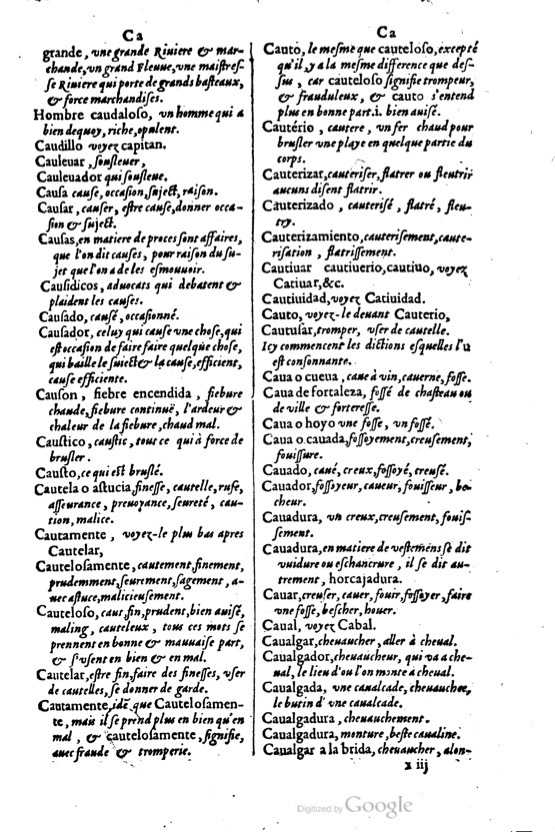 Ca
grande, vne grande Riuiere & mar-
chande, vn grand Fleuue, vne maistres-
se Riuiere qui porte de grands basteaux,
& force marchandises.
Hombre caudaloso, vn homme qui a
bien dequoy, riche, opulent.
Caudillo voyez capitan.
Cauleuar, sousleuer,
Cauleuador qui sousleue.
Causa cause, occasion, sujećt, raison.
Causar, causer, estre cause, donner occa-
sion & sujećt.
Causas, en matiere de proces sont affaires,
que l'on dit causes, pour raison du su-
jet que l'on a de les esmouuoir.
Causidicos, aduocats qui debatent &
plaident les causes.
Causado, causé, occasionné.
Causador, celuy qui cause vne chose, qui
est occasion de faire faire quelque chose,
qui baille le suiećt & la cause, efficient,
cause efficiente.
Causon, fiebre encendida, fiebure
chaude, fiebure continuë, l'ardeur &
chaleur de la fiebure, chaud mal.
Caustico, caustic, tout ce qui à force de
brusler.
Causto, ce qui est bruslé.
Cautela o astucia, finesse, cautelle, rufe,
asseurance, preuoyance, seureté, cau-
tion, malice.
Cautamente, voyez-le plus bas apres
Cautelar,
Cautelosamente, cautement, finement,
prudemment, seurement, sagement, a-
uec astuce, malicieusement.
Cauteloso, caut, fin, prudent, bien auisé,
maling, cauteleux, tous ces mots se
prennent en bonne & mauuaise part,
& s'vsent en bien & en mal.
Cautelar, estre fin, faire des finesses, vser
de cautelles, se donner de garde.
Cautamente, idē que Cautelosamen-
te, mais il se prend plus en bien qu'en
mal, & cautelosamente, signifie,
auec fraude & tromperie.
Ca
Cauto, le mesme que cauteloso, excepté
qu'il y a la mesme difference que des-
sus, car cauteloso signifie trompeur,
& frauduleux, & cauto s'entend
plus en bonne part. i. bien auisé.
Cautério, cautere, vn fer chaud pour
brusler vne playe en quelque partie du
corps.
Cauterizar, cauteriser, flatrer ou fleutrir
aucuns disent flatrir.
Cauterizado, cauterisé, flatré, fleu-
try.
Cauterizamiento, cauterisement, caute-
risation, flatrissement.
Cautiuar cautiuerio, cautiuo, voyez
Catiuar, &c.
Cautiuidad, voyez Catiuidad.
Cauto, voyez-le deuant Cauterio,
Cautusar, tromper, vser de cautelle.
Icy commencent les dićtions esquelles l'u
est consonnante.
Caua o cueua, caue à vin, cauerne, fosse.
Caua de fortaleza, fossé de chasteau ou
de ville & forteresse.
Caua o hoyo vne fosse, vn fossé.
Caua o cauada, fossoyement, creusement,
fouissure.
Cauado, caué, creux, fossoyé, creusé.
Cauador, fossoyeur, caueur, fouisseur, be-
cheur.
Cauadura, vn creux, creusement, fouis-
sement.
Cauadura, en matiere de vestemēs se dit
vuidure ou eschancrure, il se dit au-
trement, horcajadura.
Cauar, creuser, cauer, fouir, fossoyer, faire
vne fosse, bescher, houer.
Caual, voyez Cabal.
Caualgar, cheuaucher, aller à cheual.
Caualgador, cheuaucheur, qui va a che-
ual, le lieu d'ou l'on monte à cheual.
Caualgada, vne caualcade, cheuauchee,
le butin d'vne caualcade.
Caualgadura, cheuauchement.
Caualgadura, monture, beste caualine.
Caualgar a la brida, cheuaucher, alon-
x iij
Digitized by Google